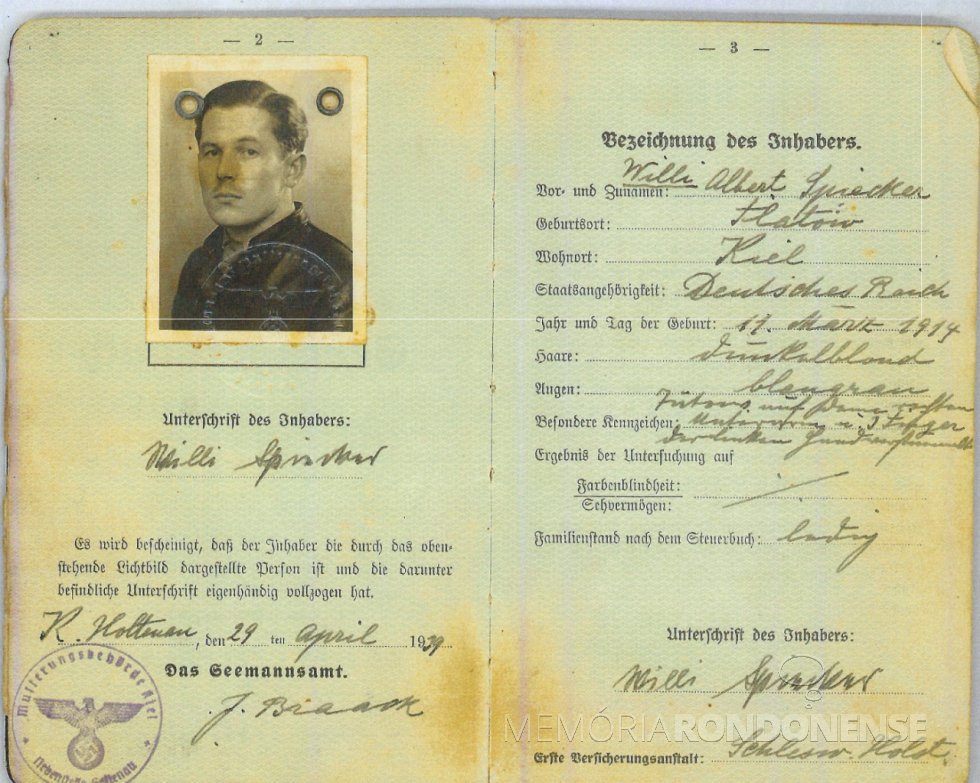 — 2 —
Unterschrift des Inhabers:
Willi Spiecker
Es wird bescheinigt, daß der Inhaber die durch das oben-
stehende Lichtbild dargestellte Person ist und die darunter
befindliche Unterschrift eigenhändig vollzogen hat.
K. Holtenau, den 29 ten April 1939
Das Seemannsamt.
J. Braack
Musterungsbehörde Kiel
Nebenstelle Holtenau
— 3 —
Bezeichnung des Inhabers.
Vor- und Zunamen: Willi Albert Spiecker
Geburtsort: Flatow
Wohnort: Kiel
Staatsangehörigkeit: Deutsches Reich
Jahr und Tag der Geburt: 17. März 1914
Haare: dunkelblond
Augen: blaugrau
Besondere Kennzeichen: auf dem rechten
Unterarm u. 3 Finger
der linken Hand
Ergebnis der Untersuchung auf
Farbenblindheit:
Sehvermögen:
Familienstand nach dem Steuerbuch: ledig
Unterschrift des Inhabers:
Willi Spiecker
MEMÓRIARONDONENSE
Erste Versicherungsanstalt: Schlesw. Holst.